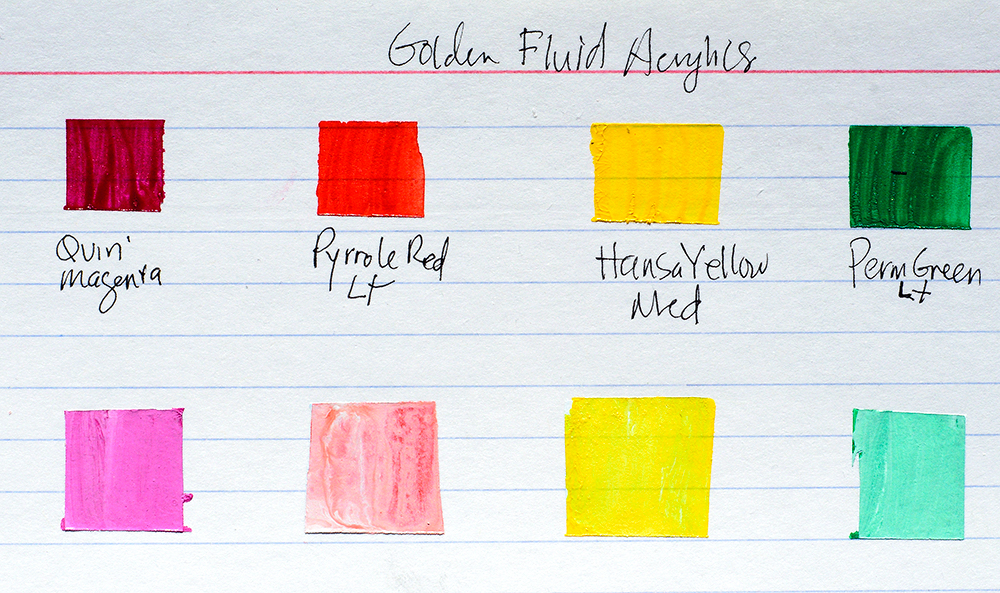 Golden Fluid Acrylics
Quin'
Magenta
Pyrrole Red
Lt
Hansa Yellow
Med
Perm Green
Lt